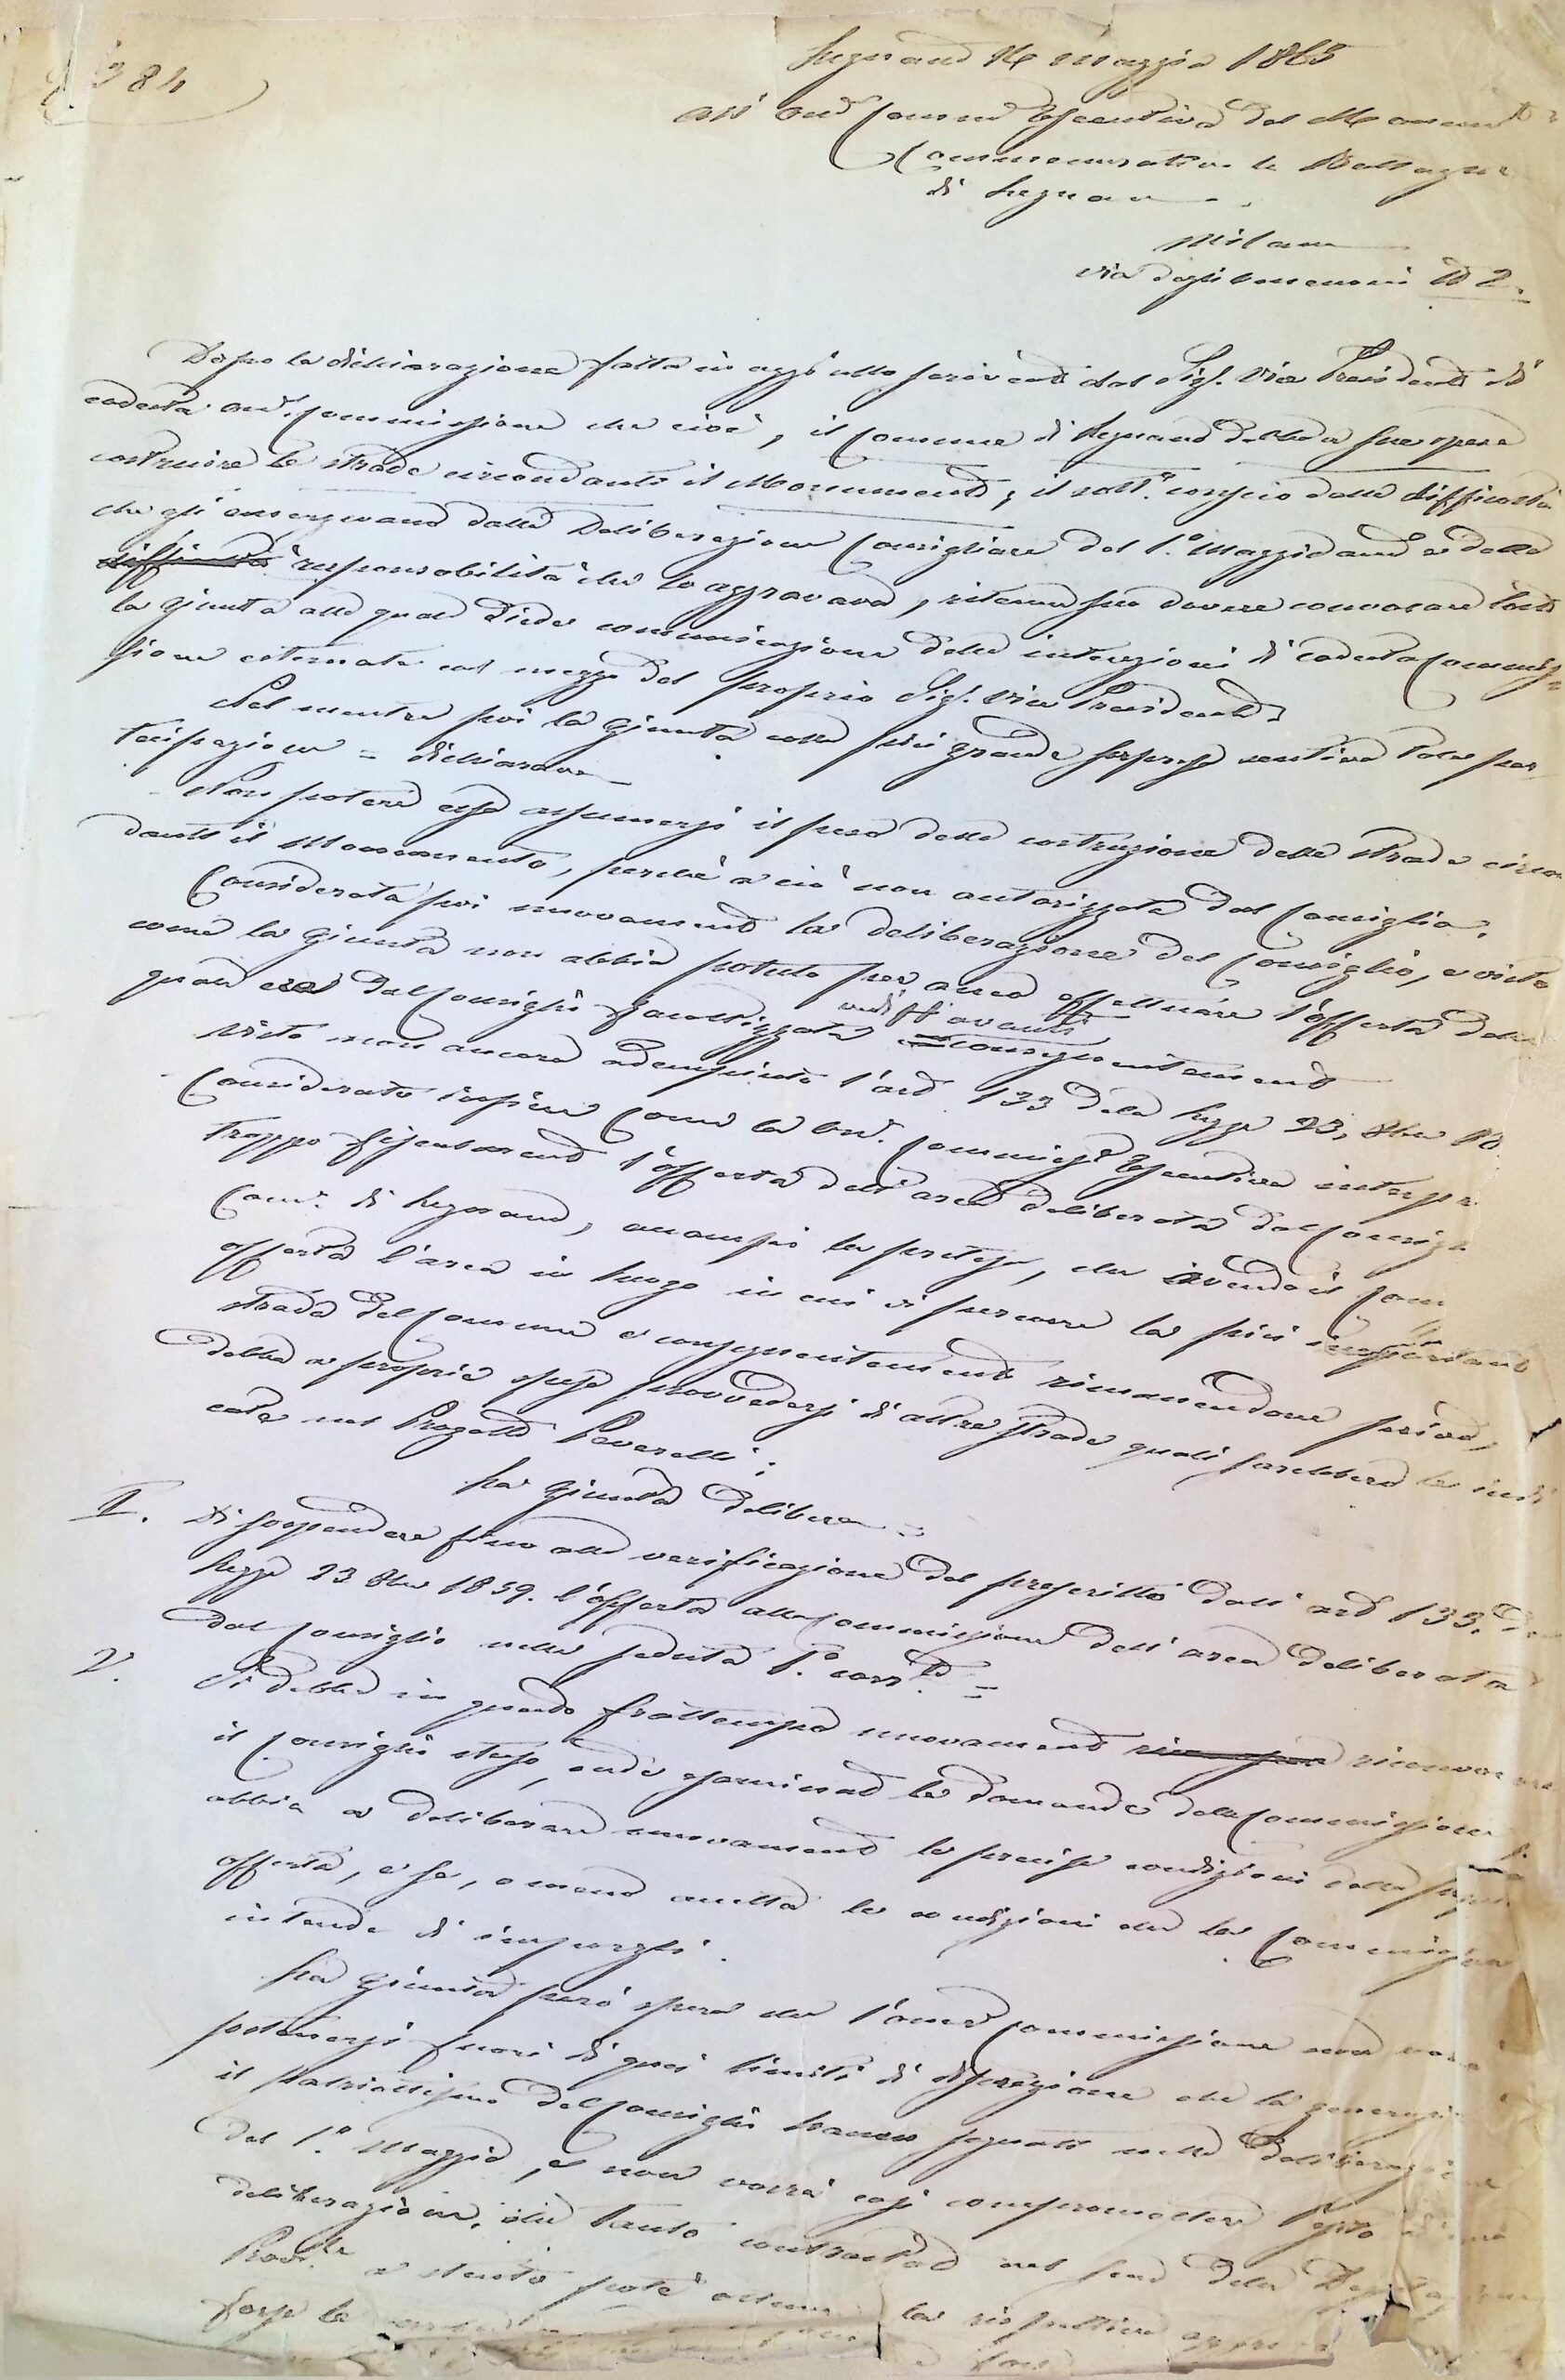 384
Legnano 14 Maggio 1865
All' Ond Commd Esecutiva del Monumento
Commemorativo la Battaglia
di Legnano
Milano
via degli Omenoni N 2.
Dopo la dichiarazione fatta in oggi allo scrivente dal Sigr. Vice Presidente di
codesta ond. Commissione che cioè, il Comune di Legnano debba a sue spese
costruire le strade circondanti il Monumento, il sott.o conscio delle difficoltà
che gli emergevano dalla Deliberazione Consigliare del 1.o Maggio and e della
responsabilità che lo aggravava, ritenne suo dovere convocare
la Giunta alla quale diede comunicazione delle intenzioni di codesta Commis=
sione esternate col mezzo del proprio Sigr. Vice Presidente.
Nel mentre poi la Giunta colla più grande sorpresa sentiva tale par
tecipazione = dichiarava
Non potere essa assumersi il peso della costruzione delle strade circon
danti il Monumento, perchè a ciò non autorizzata dal Consiglio.
Considerata poi nuovamente la deliberazione del Consiglio, e visto
come la Giunta non abbia potuto per anco effettuare l'offerta della
quale era dal Consiglio facoltizzata conseguentemente
Visto non ancora adempiuto l'art 133 della Legge 23, 8bre
Considerato infine come la On. Commiss Esecutiva
troppo l'offerta dell'area deliberata dal Consigl
Com. di Legnano, la pretesa, che avendo il Com
offerta l'area in luogo in cui vi percorre la più importante
strada del Comune e conseguentemente rimanendone priva,
debba a proprie spese provvedersi di altre strade quali sarebbero le indi
cate nel Progetto Peverelli;
La Giunta delibera =
I. Di sospendere fino alla verificazione del prescritto dall' art 133.
Legge 23 8bre 1859. l'offerta alla Commissione dell' area deliberata
dal Consiglio nella seduta 1.o corr.te =
2. Si debba in questo frattempo nuovamente riconvocare
il Consiglio stesso, onde esaminate le domande della Commissione
abbia a deliberare nuovamente le precise condizioni della
offerta, e se, o meno ammetta le condizioni che la Commissione
intende di imporgli.
La Giunta però spera che l'ond Commissione non
fuori di quei limiti di discrezione che la
il patriottismo del Consiglio hanno segnato nella Deliberazione
del 1.o Maggio, e non vorrà così compromettere
deliberazione, che tanto contrastata nel seno della
Prov.le a stento potè ottenere la rispettiva
forse le